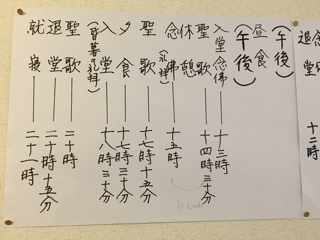 退堂 十二時
（午後）
昼食
（午後）
入堂念佛 十三時
聖歌 十四時三十分
休憩
念佛（礼拝） 十五時
聖歌 十七時十五分
夕食 十七時三十分
入堂（昏暮の礼拝） 十八時三十分
聖歌 二十時
退堂 二十時十五分
就寝 二十一時